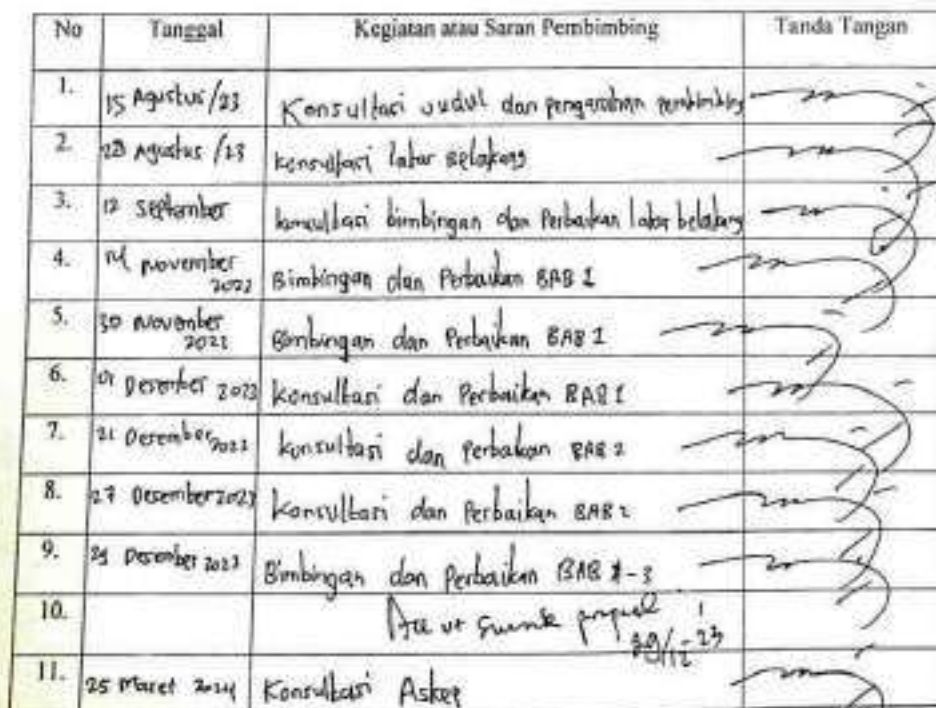 No Tanggal Kegiatan atau Saran Pembimbing Tanda Tangan
1. 15 Agustus /23 Konsultasi Judul dan pengarahan pembimbing
2. 28 Agustus /23 konsultasi latar belakang
3. 12 September konsultasi bimbingan dan Perbaikan latar belakang
4. November 2023 Bimbingan dan Perbaikan BAB 1
5. 30 November 2023 Bimbingan dan Perbaikan BAB 1
6. 01 Desember 2023 Konsultasi dan Perbaikan BAB 1
7. 21 Desember 2023 konsultasi dan Perbaikan BAB 2
8. 27 Desember 2023 Konsultasi dan Perbaikan BAB 2
9. 29 Desember 2023 Bimbingan dan Perbaikan BAB 1-3
10. Acc
29/12-23
11. 25 Maret 2024 Konsultasi Askep